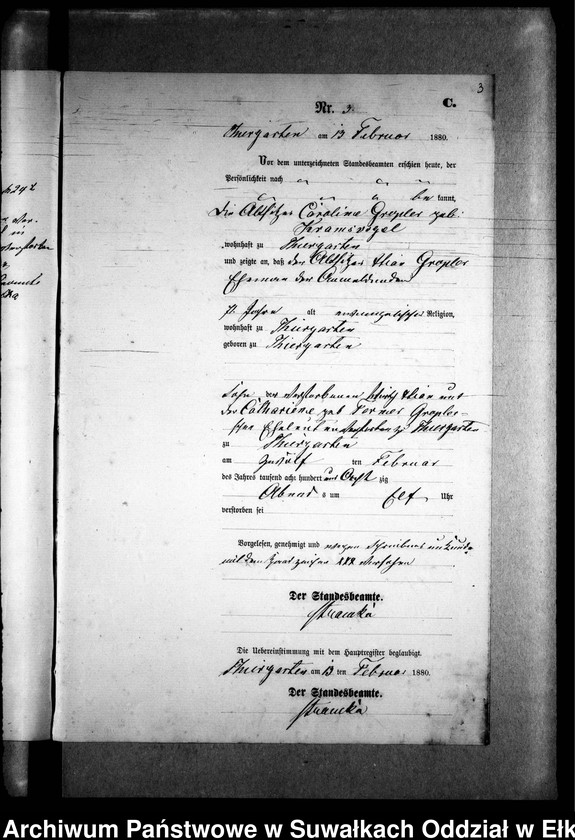 3
Nr. 3.
C.
Thiergarten am 13 Februar 1880.
Vor dem unterzeichneten Standesbeamten erschien heute, der
Persönlichkeit nach
be kannt,
Die Altsitzer Caroline Gropler geb:
Kramsvogel
wohnhaft zu Thiergarten
und zeigte an, daß der Altsitzer Gropler
Ehemann der Anmeldenden
71 Jahre alt evangelischer Religion,
wohnhaft zu Thiergarten
geboren zu Thiergarten
Sohn der verstorbenen und
der Cathariene geb Gropler-
schen Eheleuten verstorben zu Thiergarten
zu Thiergarten
am zwölf ten Februar
des Jahres tausend acht hundert und Acht zig
Abend s um Elf Uhr
verstorben sei
Vorgelesen, genehmigt und wegen Schreibens unkunde
mit dem Kreuzzeichen xxx versehen
Der Standesbeamte.
Die Uebereinstimmung mit dem Hauptregister beglaubigt.
Thiergarten am 13 ten Februar 1880.
Der Standesbeamte.
Archiwum Państwowe w Suwałkach Oddział w Ełk